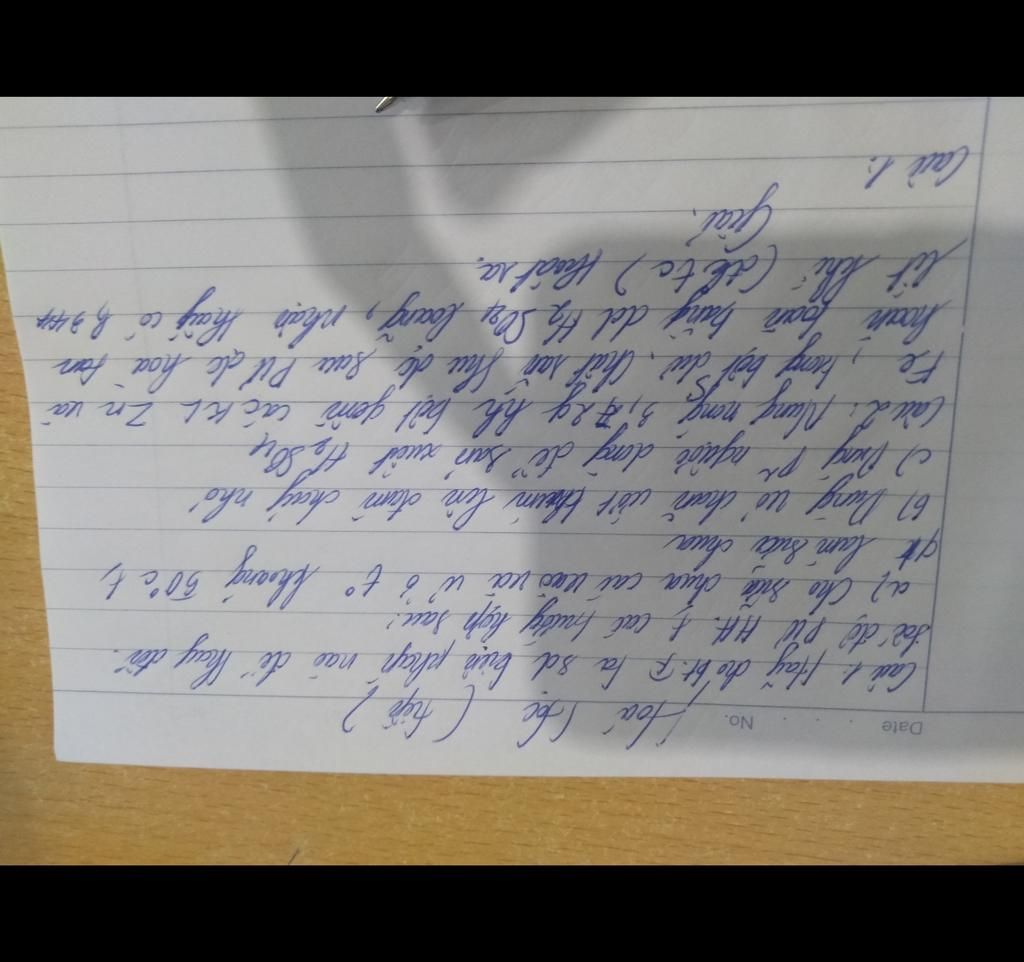 Date . . . . No.
Hoá học (tiếp)
Câu 1. Hãy cho biết ta sd biện pháp nào để thay đổi
tốc độ PƯ HH. t các trường hợp sau:
a) Cho sữa chua cái vào và ủ ở t° khoảng 50°c t,
làm sữa chua
b) Dùng lò chuẩn ướt thêm lên đám cháy nhỏ
c) Dùng pp ngược dòng để sản xuất H2SO4
Câu 2: Nung nóng 3,72g hh bột gồm các KL Zn và
Fe, trong bột S dư. Chất rắn thu đc sau PƯ đc hoà tan
hoàn toàn bằng dd H2SO4 loãng, nhận thấy có 1,344
lít khí (đktc) thoát ra.
Giải.
Câu 1: